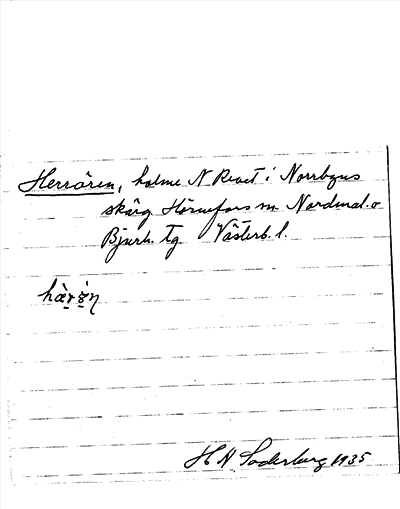 Herrören, holme N Revet i Norrbyns
skärg Hörnefors sn Nordmal. o
Bjurh. tg Västerb. l.
hàr
H N Söderberg 1935